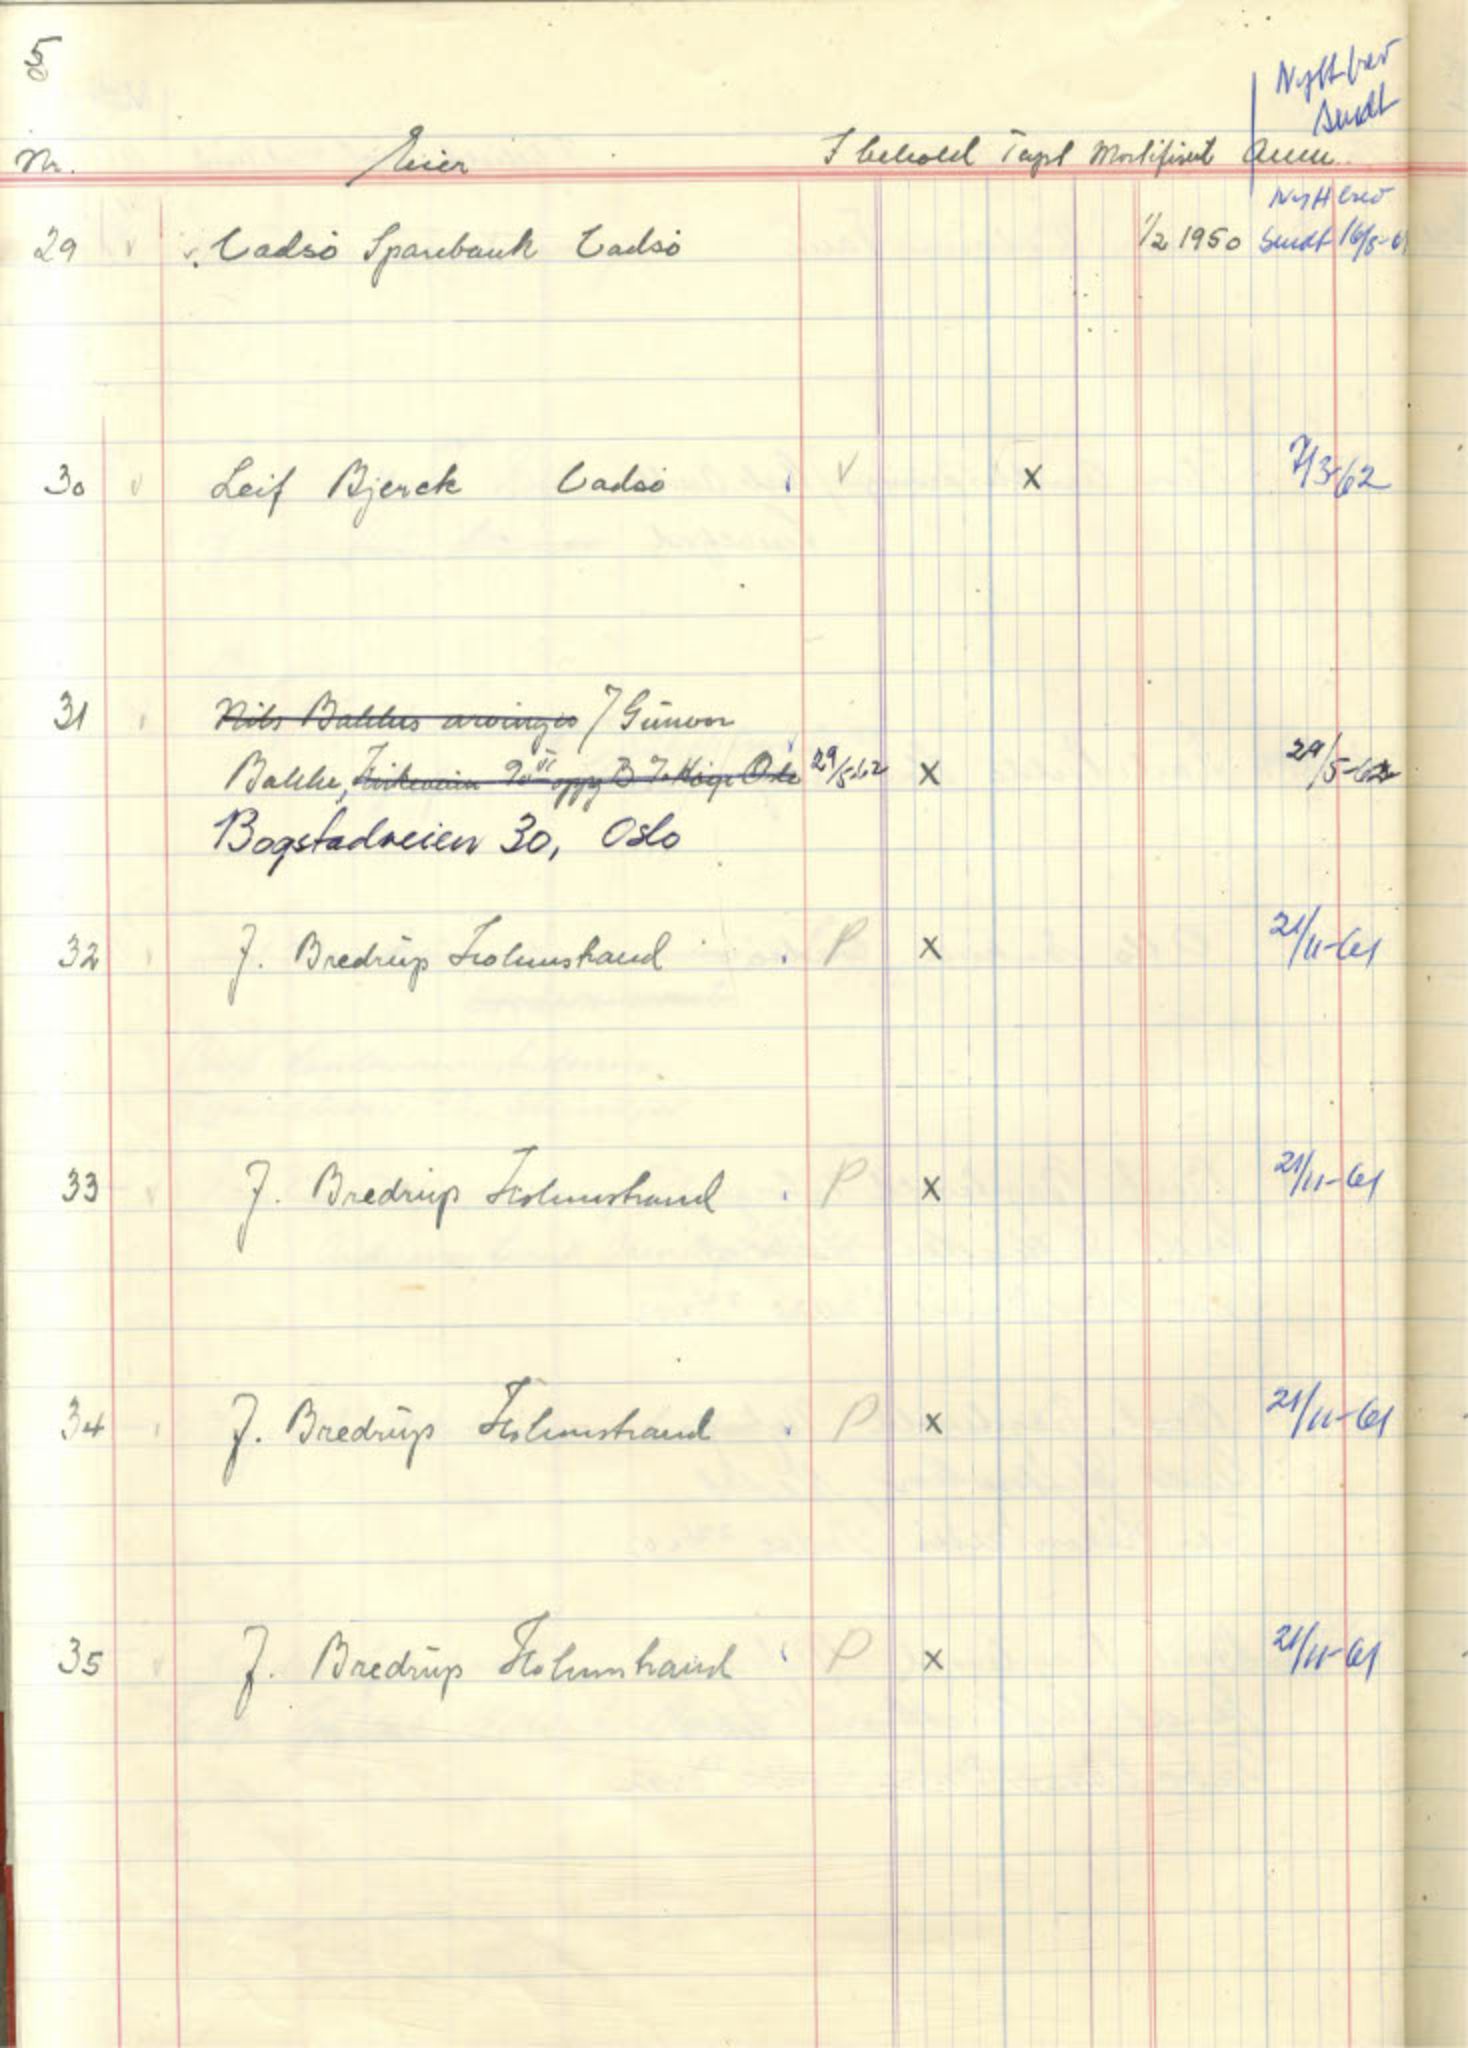 5
Nyttbrev
sendt
Nr. Eier I behold Tapt Mortifisert Anm.
Nytt brev
29 v v. Vadsö Sparebank Vadsö 1/2 1950 Sendt 16/5-61
30 v Leif Bjerck Vadsö v X 7/3-62
31 Nils Bakkes arvinger / Gunvor
Bakke, oppg B Oslo 29/5-62 X 29/5-62
Bogstadveien 30, Oslo
32 J. Bredrup Holmstrand P X 21/11-61
33 v J. Bredrup Holmstrand P X 21/11-61
34 J. Bredrup Holmstrand P X 21/11-61
35 v J. Bredrup Holmstrand P X 21/11-61